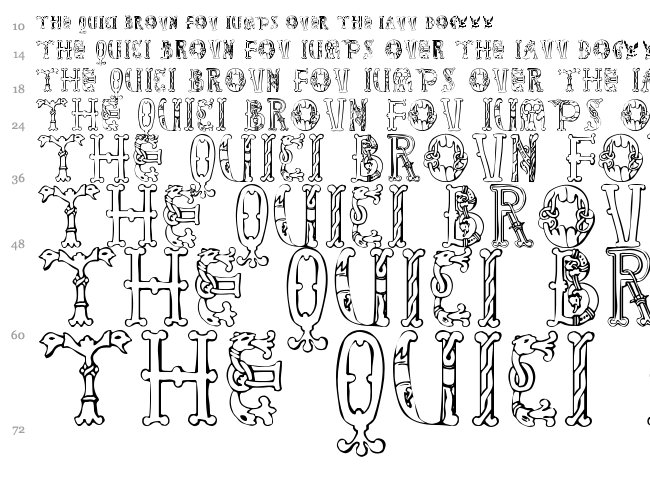 10 THE QUICI BROVN FOV IUMPS OVER THE IAVV DOGVVV
14 THE QUICI BROVN FOV IUMPS OVER THE IAVV DOGVV
18 THE QUICI BROVN FOV IUMPS OVER THE IA
24 THE QUICI BROVN FOV IUMPS O
36 THE QUICI BROVN FO
48 THE QUICI BROV
60 THE QUICI BR
72 THE QUICI